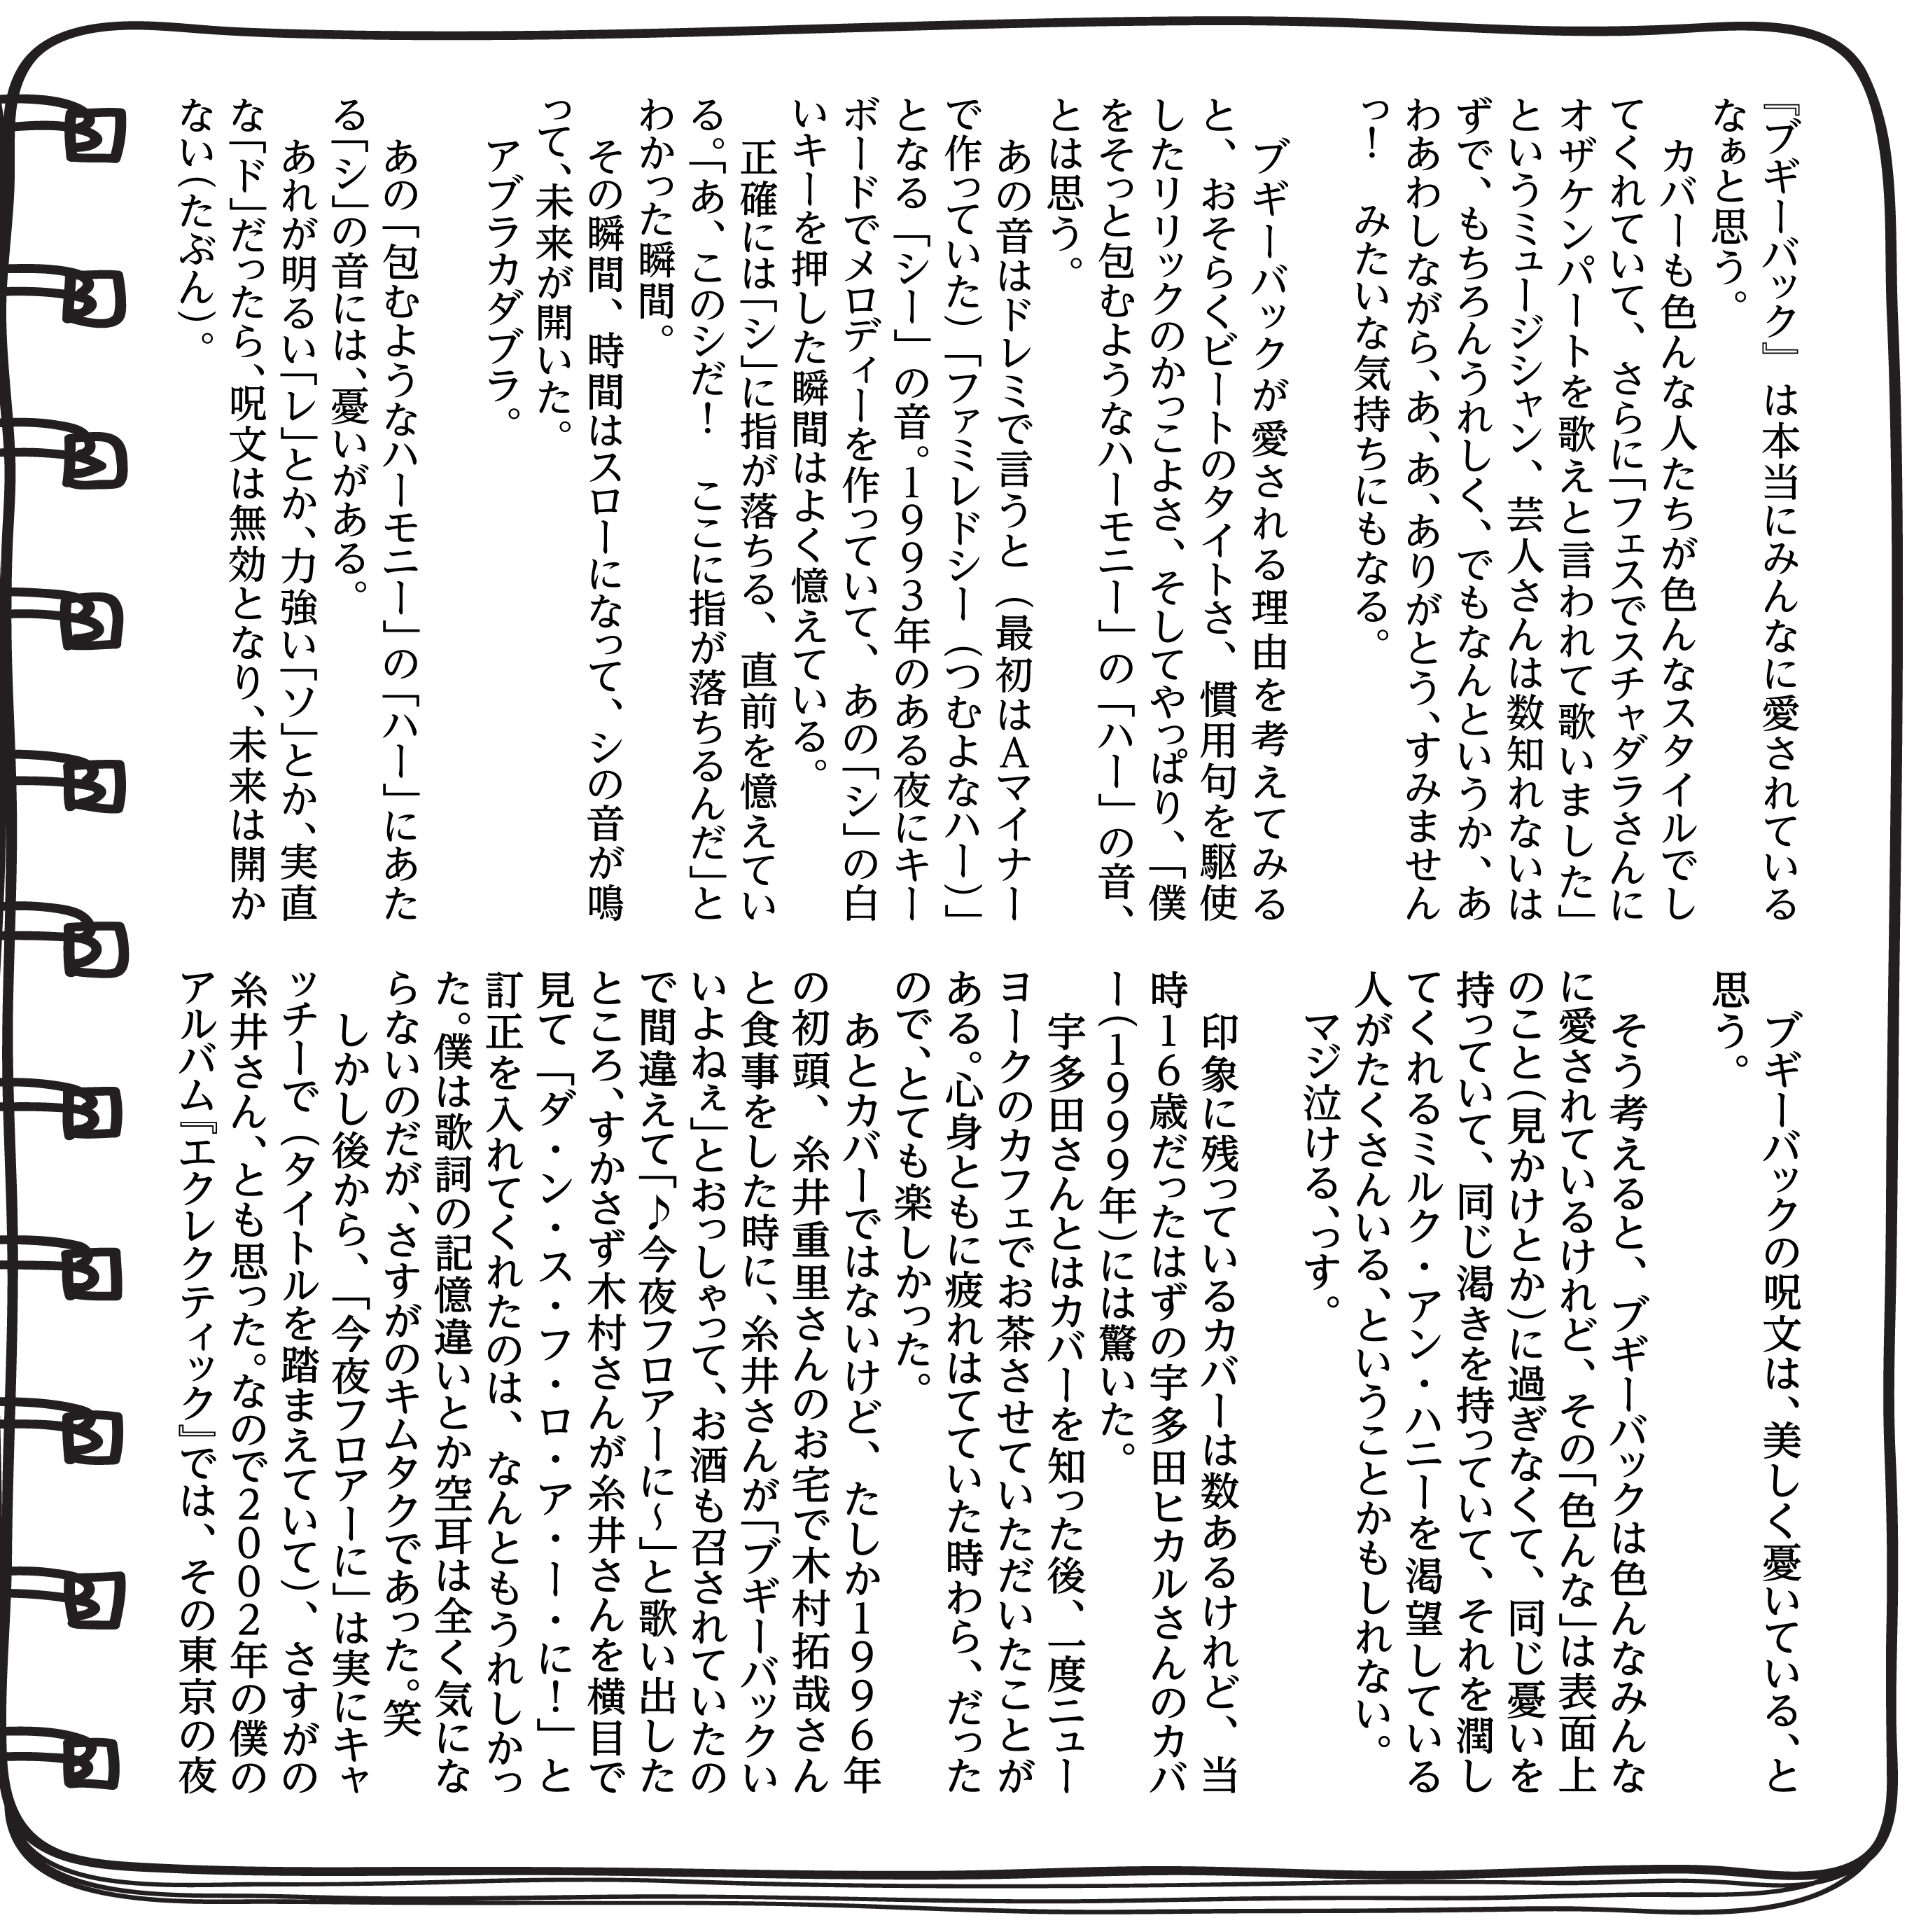 『ブギーバック』は本当にみんなに愛されている
なぁと思う。
カバーも色んな人たちが色んなスタイルでし
てくれていて、さらに「フェスでスチャダラさんに
オザケンパートを歌えと言われて歌いました」
というミュージシャン、芸人さんは数知れないは
ずで、もちろんうれしく、でもなんというか、あ
わあわしながら、あ、あ、ありがとう、すみません
っ！　みたいな気持ちにもなる。
ブギーバックが愛される理由を考えてみる
と、おそらくビートのタイトさ、慣用句を駆使
したリリックのかっこよさ、そしてやっぱり、「僕
をそっと包むようなハーモニー」の「ハー」の音、
とは思う。
あの音はドレミで言うと（最初はＡマイナー
で作っていた）「ファミレドシー（つむよなハー）」
となる「シー」の音。1993年のある夜にキー
ボードでメロディーを作っていて、あの「シ」の白
いキーを押した瞬間はよく憶えている。
正確には「シ」に指が落ちる、直前を憶えてい
る。「あ、このシだ！　ここに指が落ちるんだ」と
わかった瞬間。
その瞬間、時間はスローになって、シの音が鳴
って、未来が開いた。
アブラカダブラ。
あの「包むようなハーモニー」の「ハー」にあた
る「シ」の音には、憂いがある。
あれが明るい「レ」とか、力強い「ソ」とか、実直
な「ド」だったら、呪文は無効となり、未来は開か
ない（たぶん）。
ブギーバックの呪文は、美しく憂いている、と
思う。
そう考えると、ブギーバックは色んなみんな
に愛されているけれど、その「色んな」は表面上
のこと（見かけとか）に過ぎなくて、同じ憂いを
持っていて、同じ渇きを持っていて、それを潤し
てくれるミルク・アン・ハニーを渇望している
人がたくさんいる、ということかもしれない。
マジ泣ける、っす。
印象に残っているカバーは数あるけれど、当
時16歳だったはずの宇多田ヒカルさんのカバ
ー（1999年）には驚いた。
宇多田さんとはカバーを知った後、一度ニュー
ヨークのカフェでお茶させていただいたことが
ある。心身ともに疲れはてていた時わら、だった
ので、とても楽しかった。
あとカバーではないけど、たしか1996年
の初頭、糸井重里さんのお宅で木村拓哉さん
と食事をした時に、糸井さんが「ブギーバックい
いよねぇ」とおっしゃって、お酒も召されていたの
で間違えて「♪今夜フロアーに〜」と歌い出した
ところ、すかさず木村さんが糸井さんを横目で
見て「ダ・ン・ス・フ・ロ・ア・ー・に！」と
訂正を入れてくれたのは、なんともうれしかっ
た。僕は歌詞の記憶違いとか空耳は全く気にな
らないのだが、さすがのキムタクであった。笑
しかし後から、「今夜フロアーに」は実にキャ
ッチーで（タイトルを踏まえていて）、さすがの
糸井さん、とも思った。なので2002年の僕の
アルバム『エクレクティック』では、その東京の夜